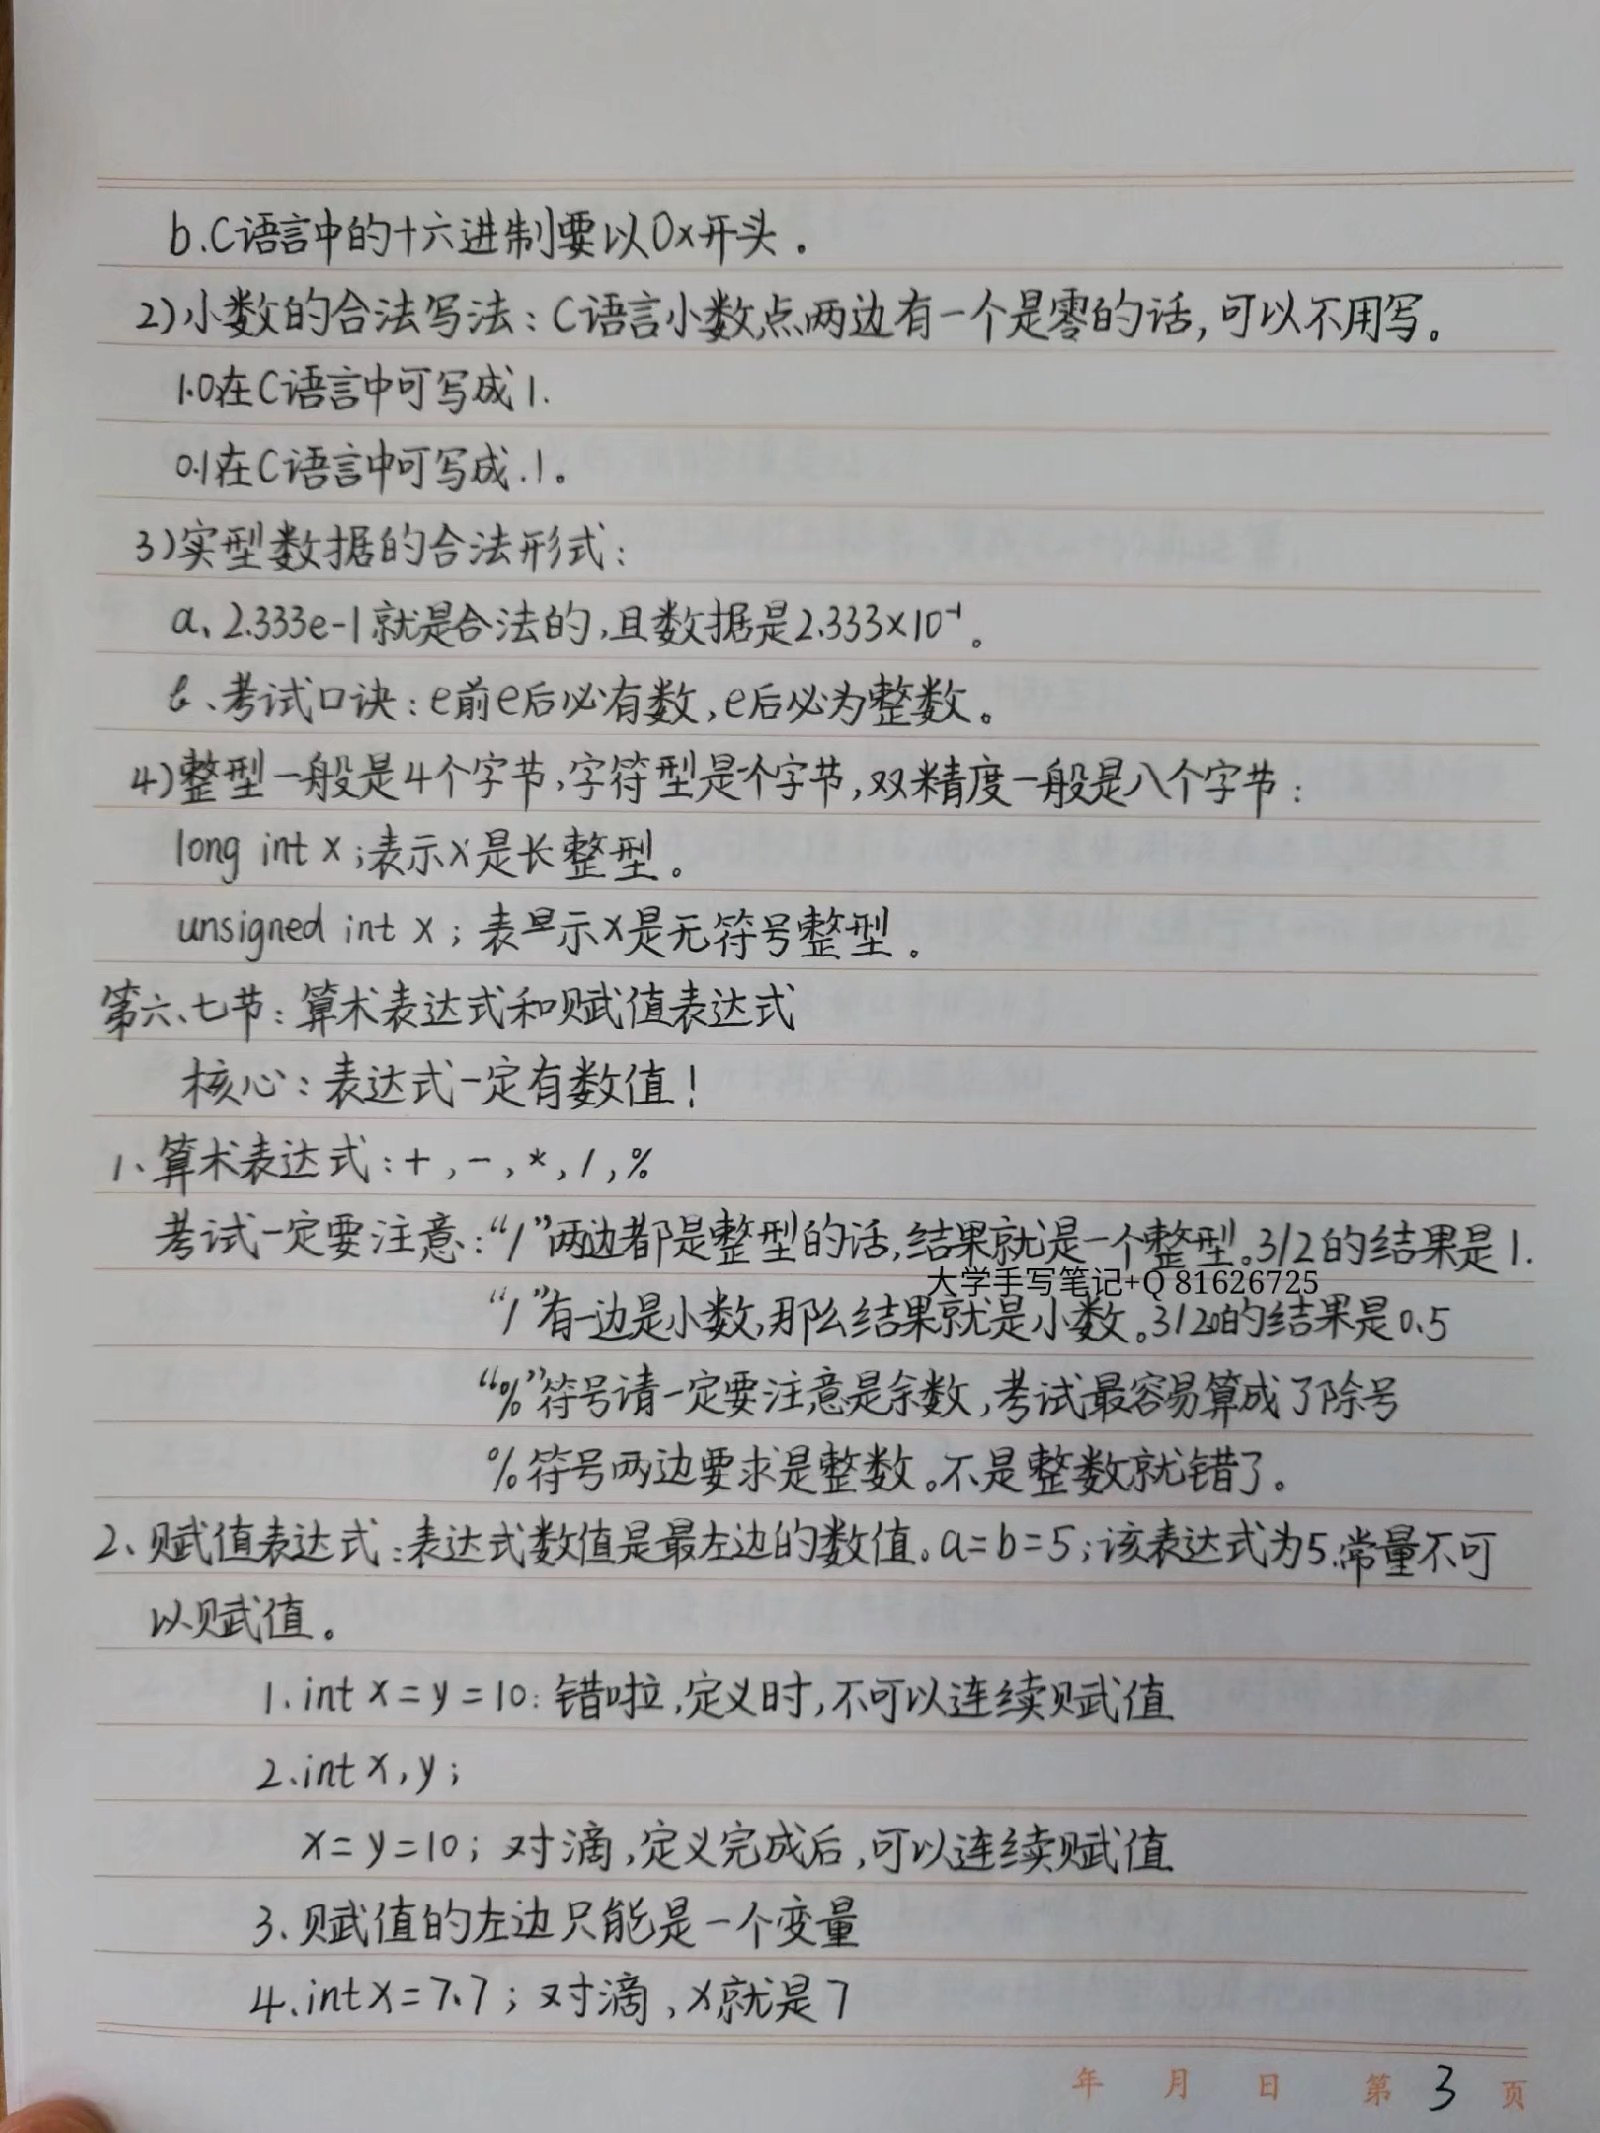 b.C语言中的十六进制要以0x开头。
2)小数的合法写法:C语言小数点两边有一个是零的话,可以不用写。
1.0在C语言中可写成1.
0.1在C语言中可写成.1。
3)实型数据的合法形式:
a、2.333e-1就是合法的,且数据是2.333×10⁻¹。
b、考试口诀:e前e后必有数,e后必为整数。
4)整型一般是4个字节,字符型是一个字节,双精度一般是八个字节:
long int x;表示x是长整型。
unsigned int x;表示x是无符号整型。
第六、七节:算术表达式和赋值表达式
核心:表达式一定有数值!
1、算术表达式:+,-,*,/,%
考试一定要注意:“/”两边都是整型的话,结果就是一个整型。3/2的结果是1.
大学手写笔记+Q 81626725
“/”有一边是小数,那么结果就是小数。3/2.0的结果是0.5
“%”符号请一定要注意是余数,考试最容易算成了除号
%符号两边要求是整数。不是整数就错了。
2、赋值表达式:表达式数值是最左边的数值。a=b=5;该表达式为5.常量不可
以赋值。
1.int x=y=10:错啦,定义时,不可以连续赋值
2.int x,y;
x=y=10;对滴,定义完成后,可以连续赋值
3、赋值的左边只能是一个变量
4.int x=7.7;对滴,x就是7
年 月 日 第 3 页